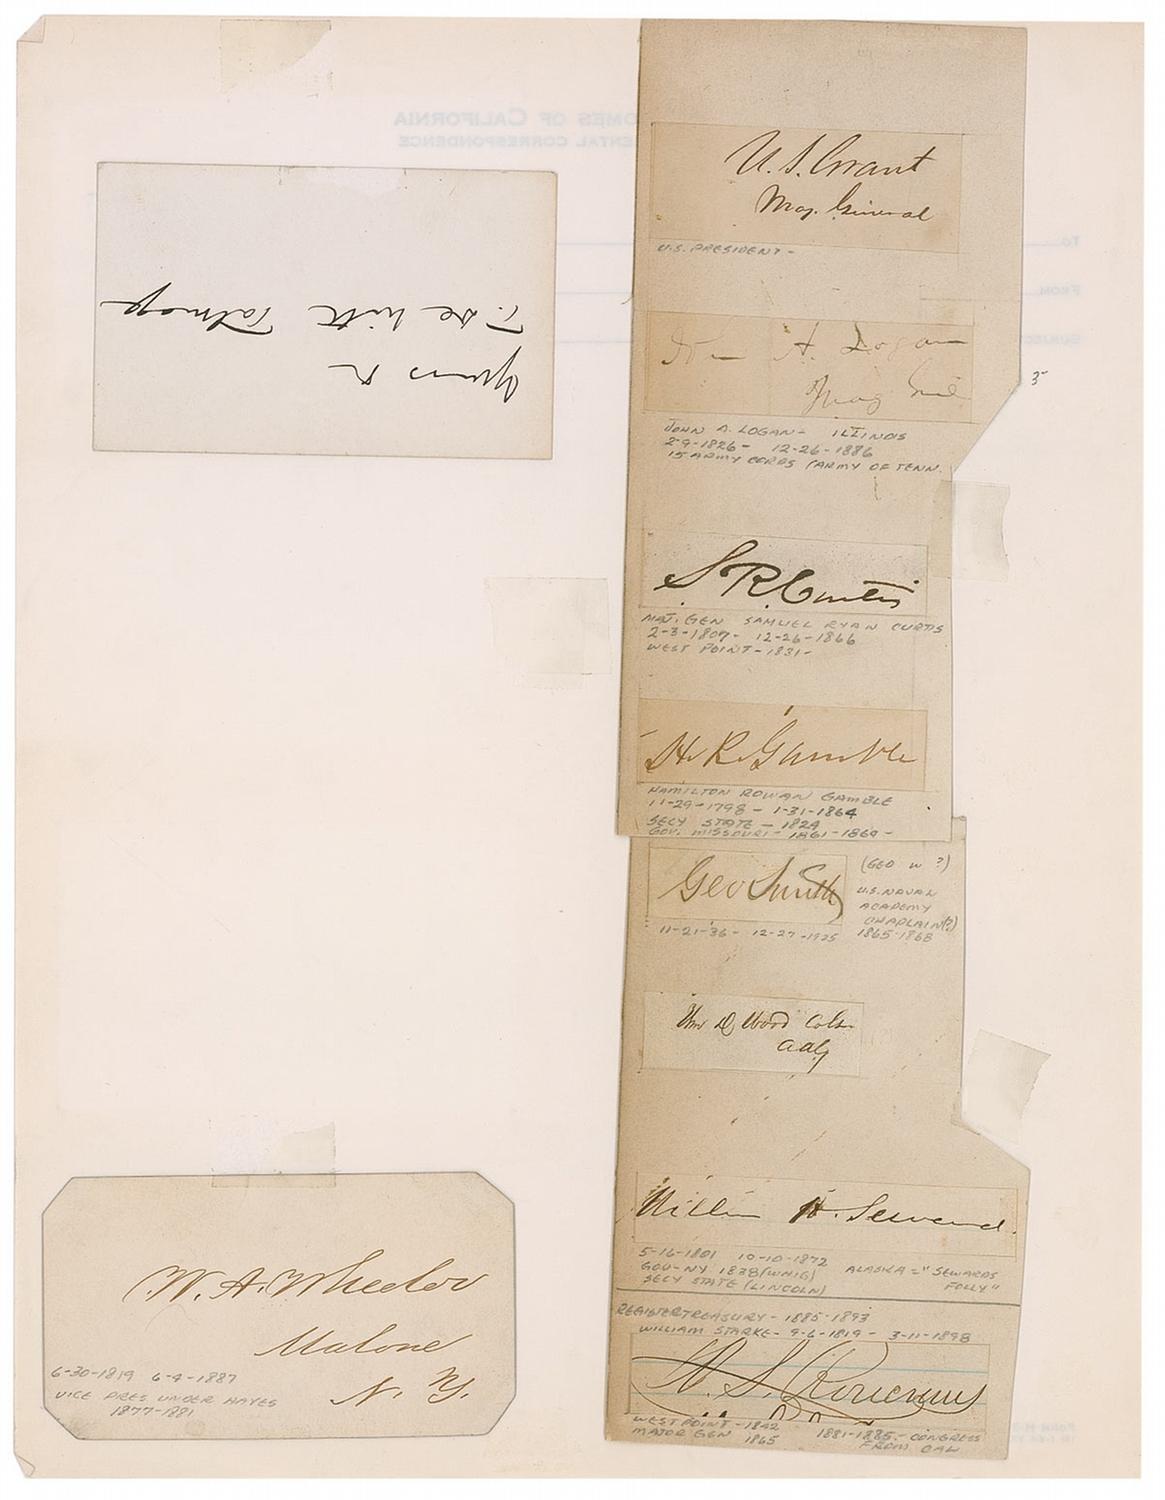 OMES OF CALIFORNIA
ENTAL CORRESPONDENCE
TO
FROM
SUBJEC
Yours &c
T. De Witt Talmage
U.S. Grant
Maj. General
U.S. PRESIDENT -
Jno A. Logan
Maj Genl
3
JOHN A. LOGAN - ILLINOIS
2-9-1826 - 12-26-1886
15 ARMY CORPS (ARMY OF TENN.
S. R. Curtis
MAJ. GEN SAMUEL RYAN CURTIS
2-3-1807 - 12-26-1866
WEST POINT - 1831 -
H. R. Gamble
HAMILTON ROWAN GAMBLE
11-29-1798 - 1-31-1864
SECY STATE - 1824
GOV. MISSOURI - 1861-1864 -
Geo Smith
(GEO W ?)
U.S. NAVAL
ACADEMY
CHAPLAIN(?)
1865-1868
11-21-36 - 12-27-1925
Wm D, Wood Col.
AAG
William H. Seward.
5-16-1801 10-10-1872
GOV-NY 1838 (WHIG) ALASKA = "SEWARDS
SECY STATE (LINCOLN) FOLLY"
REGISTER TREASURY - 1885-1893
WILLIAM STARKE - 9-6-1819 - 3-11-1898
W. S. Rosecrans
WEST POINT - 1842 1881-1885 - CONGRESS
MAJOR GEN 1865 FROM CAL
W. A. Wheeler
Malone
N. Y.
6-30-1819 6-4-1887
VICE PRES UNDER HAYES
1877-1881